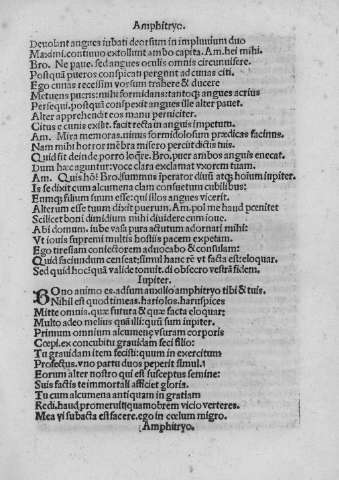 Amphitryo.
Deuolant angues iubati deorsum in impluuium duo
Maximi. continuo extollunt ambo capita. Am. hei mihi.
Bro. Ne paue. sed angues oculis omnis circumisere.
Postquā pueros conspicati pergunt ad cunas citi.
Ego cunas recessim vorsum trahere & ducere
Metuens pueris: mihi formidans: tantoq; angues acrius
Persequi. postquā conspexit angues ille alter pauet.
Alter apprehendit eos manu perniciter.
Citus e cunis exilit. facit recta in anguis impetum.
Am. Mira memoras. nimis formidolosum prædicas facinus.
Nam mihi horror mēbra misero percūt dictis tuis.
Quid fit deinde porro loq̄re. Bro. puer ambos anguis enecat.
Dum hæc agūtur: voce clara exclamat vxorem tuam.
Am. Quis hō? Bro. summus iperator diuū atq; hoium iupiter.
Is se dixit cum alcumena clam consuetum cubilibus:
Eumq; filium suum esse: qui illos angues vicerit.
Alterum esse tuum dixit puerum. Am. pol me haud pœnitet
Scilicet boni dimidium mihi diuidere cum ioue.
Abi domum. iube vasa pura actutum adornari mihi:
Ut iouis supremi multis hostiis pacem expetam.
Ego tiresiam coniectorem aduocabo & consulam:
Quid faciundum censeat: simul hanc rē vt facta est: eloquar.
Sed quid hoc: quā valide tonuit. di obsecro vestrā fidem.
Iupiter.
BOno animo es. adsum auxilio amphitryo tibi & tuis.
Nihil est quod timeas. hariolos. haruspices
Mitte omnis. quæ futura & quæ facta eloquar:
Multo adeo melius quā illi: quū sum iupiter.
Primum omnium alcumenę vsuram corporis
Cœpi. ex concubitu grauidam feci filio:
Tu grauidam item fecisti: quum in exercitum
Profectus. vno partu duos peperit simul.
Eorum alter nostro qui est susceptus semine:
Suis factis te immortali afficiet gloria.
Tu cum alcumena antiquam in gratiam
Redi. haud promeruit: quamobrem vicio verteres.
Mea vi subacta est facere. ego in cœlum migro.
Amphitryo.